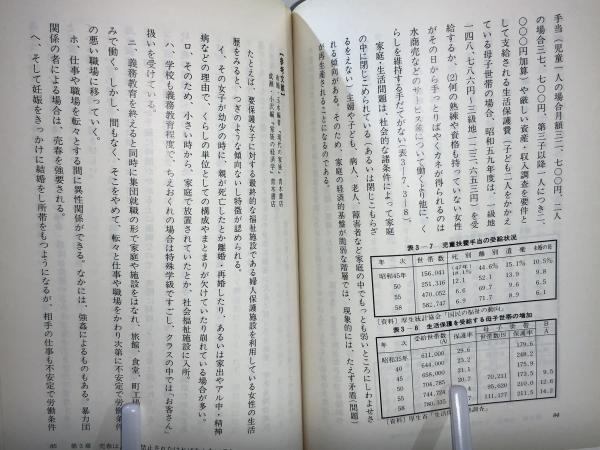 手当（児童一人の場合月額三二、七〇〇円、二人
の場合三七、七〇〇円、第三子以降一人につき二、
〇〇〇円加算）や厳しい資産・収入調査を要件と
して支給される生活保護費（子ども二人をかかえ
る母子世帯の場合、昭和五九年度は、一級地
一四八、七八六円〜三級地一二三、六五三円）を受
給するか、(2)何の熟練や資格も持っていない女性
がその日から手っとりばやくカネが得られるのは
水商売などのサービス業について働くより他に、く
らしを維持する手だてがない（表3—7、3—8）。
家庭・生活問題は、社会的な諸条件によって家庭
の中に閉じこめられている（あるいは閉じこもらざ
るをえない）主婦や子ども、病人、老人、障害者など家庭の中でもっとも弱いところにしわよせさ
れる傾向がある。そのため、家庭の経済的基盤が脆弱な階層では、現象的には、たえず矛盾（問題）
が再生産されることになるのである。
表3—7 児童扶養手当の受給状況
年次 世帯数 死別 離別 遺棄 未婚の母
昭和45年 156,041 18.1% 44.6% 15.1% 10.5%
50 251,316 12.1 52.1 13.9 9.8
55 470,052 8.6 69.7 9.6 6.5
58 562,747 6.9 71.7 8.9 6.1
〔資料〕厚生統計協会「国民の福祉の動向」
表3—8 生活保護を受給する母子世帯の増加
年次 受給世帯数(A) 保護率 母子世帯 世帯数(B) 保護率 B/A
昭和35年 611,000 25.6 179.6
40 644,000 21.2 248.2
45 658,000 21.1 175.9
50 704,785 20.7 70,211 172.5 9.5
55 744,724 95,620 210.0 12.6
58 780,335 111,177 211.5 14.2
84
【参考文献】
たとえば、要保護女子に対する最終的な福祉施設である婦人保護施設を利用している女性の生活
歴をみると、つぎのような傾向ないし特徴が認められる。
イ、その女子が幼少の時に、親が死亡したとか離婚・再婚したり、あるいは家出やアル中・精神
病などの理由で、くらしの単位としての構成やまとまりが欠けていたり崩れている場合が多い。
ロ、そのため、小さい時から、家庭で放置されていたとか、社会福祉施設に入所、
ハ、学校も義務教育程度で、ちえおくれの場合は特殊学級ですごし、クラスの中では「お客さん」
扱いを受けている。
ニ、義務教育を終えると同時に集団就職の形で家庭や施設をはなれ、旅館、食堂、町工場
みで働く。しかし、間もなく、そこをやめて、転々と仕事や職場をかわり次第に不安定で労働条件
の悪い職場に移っていく。
ホ、仕事や職場を転々とする間に異性関係ができる。なかには、強姦によるものもある。暴力団
関係の者による場合は、売春を強要される。
へ、そして妊娠をきっかけに結婚をし所帯をもつようになるが、相手の仕事も不安定で労働条件
85